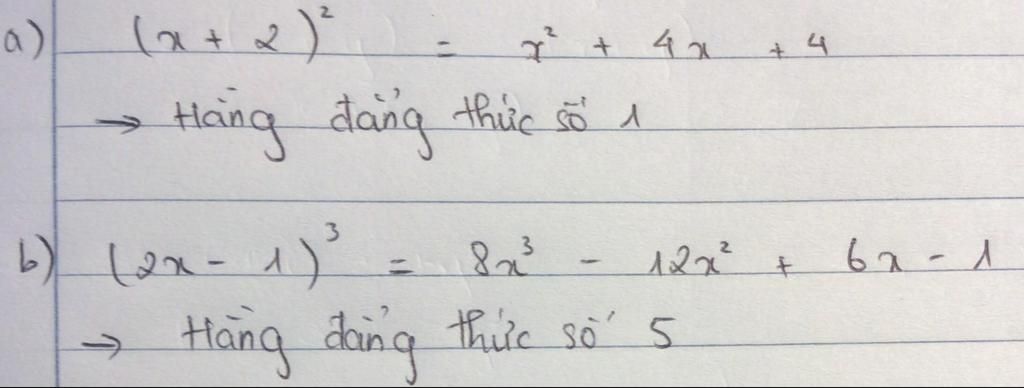 a) (x + 2)² = x² + 4x + 4
→ Hằng đẳng thức số 1
b) (2x - 1)³ = 8x³ - 12x² + 6x - 1
→ Hằng đẳng thức số 5